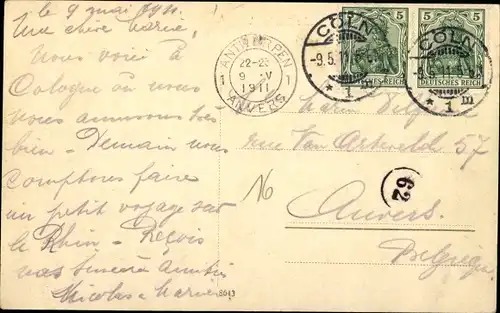 le 9 mai 1911.
Ma chère Marie,
Nous voici à
Cologne où nous
nous amusons très
bien - Demain nous
comptons faire
un petit voyage sur
le Rhin - Reçois
nos sincères amitiés
Nicolas & Marie
8613
ANTWERPEN
1 22-23 1
9 V
1911
ANVERS
CÖLN
-9.5.11
* 1 m
CÖLN
-9.5.11
* 1 m
5 5
DEUTSCHES REICH
DEUTSCHES REICH
rue Van Artevelde 57
16
62
Anvers
Belgique